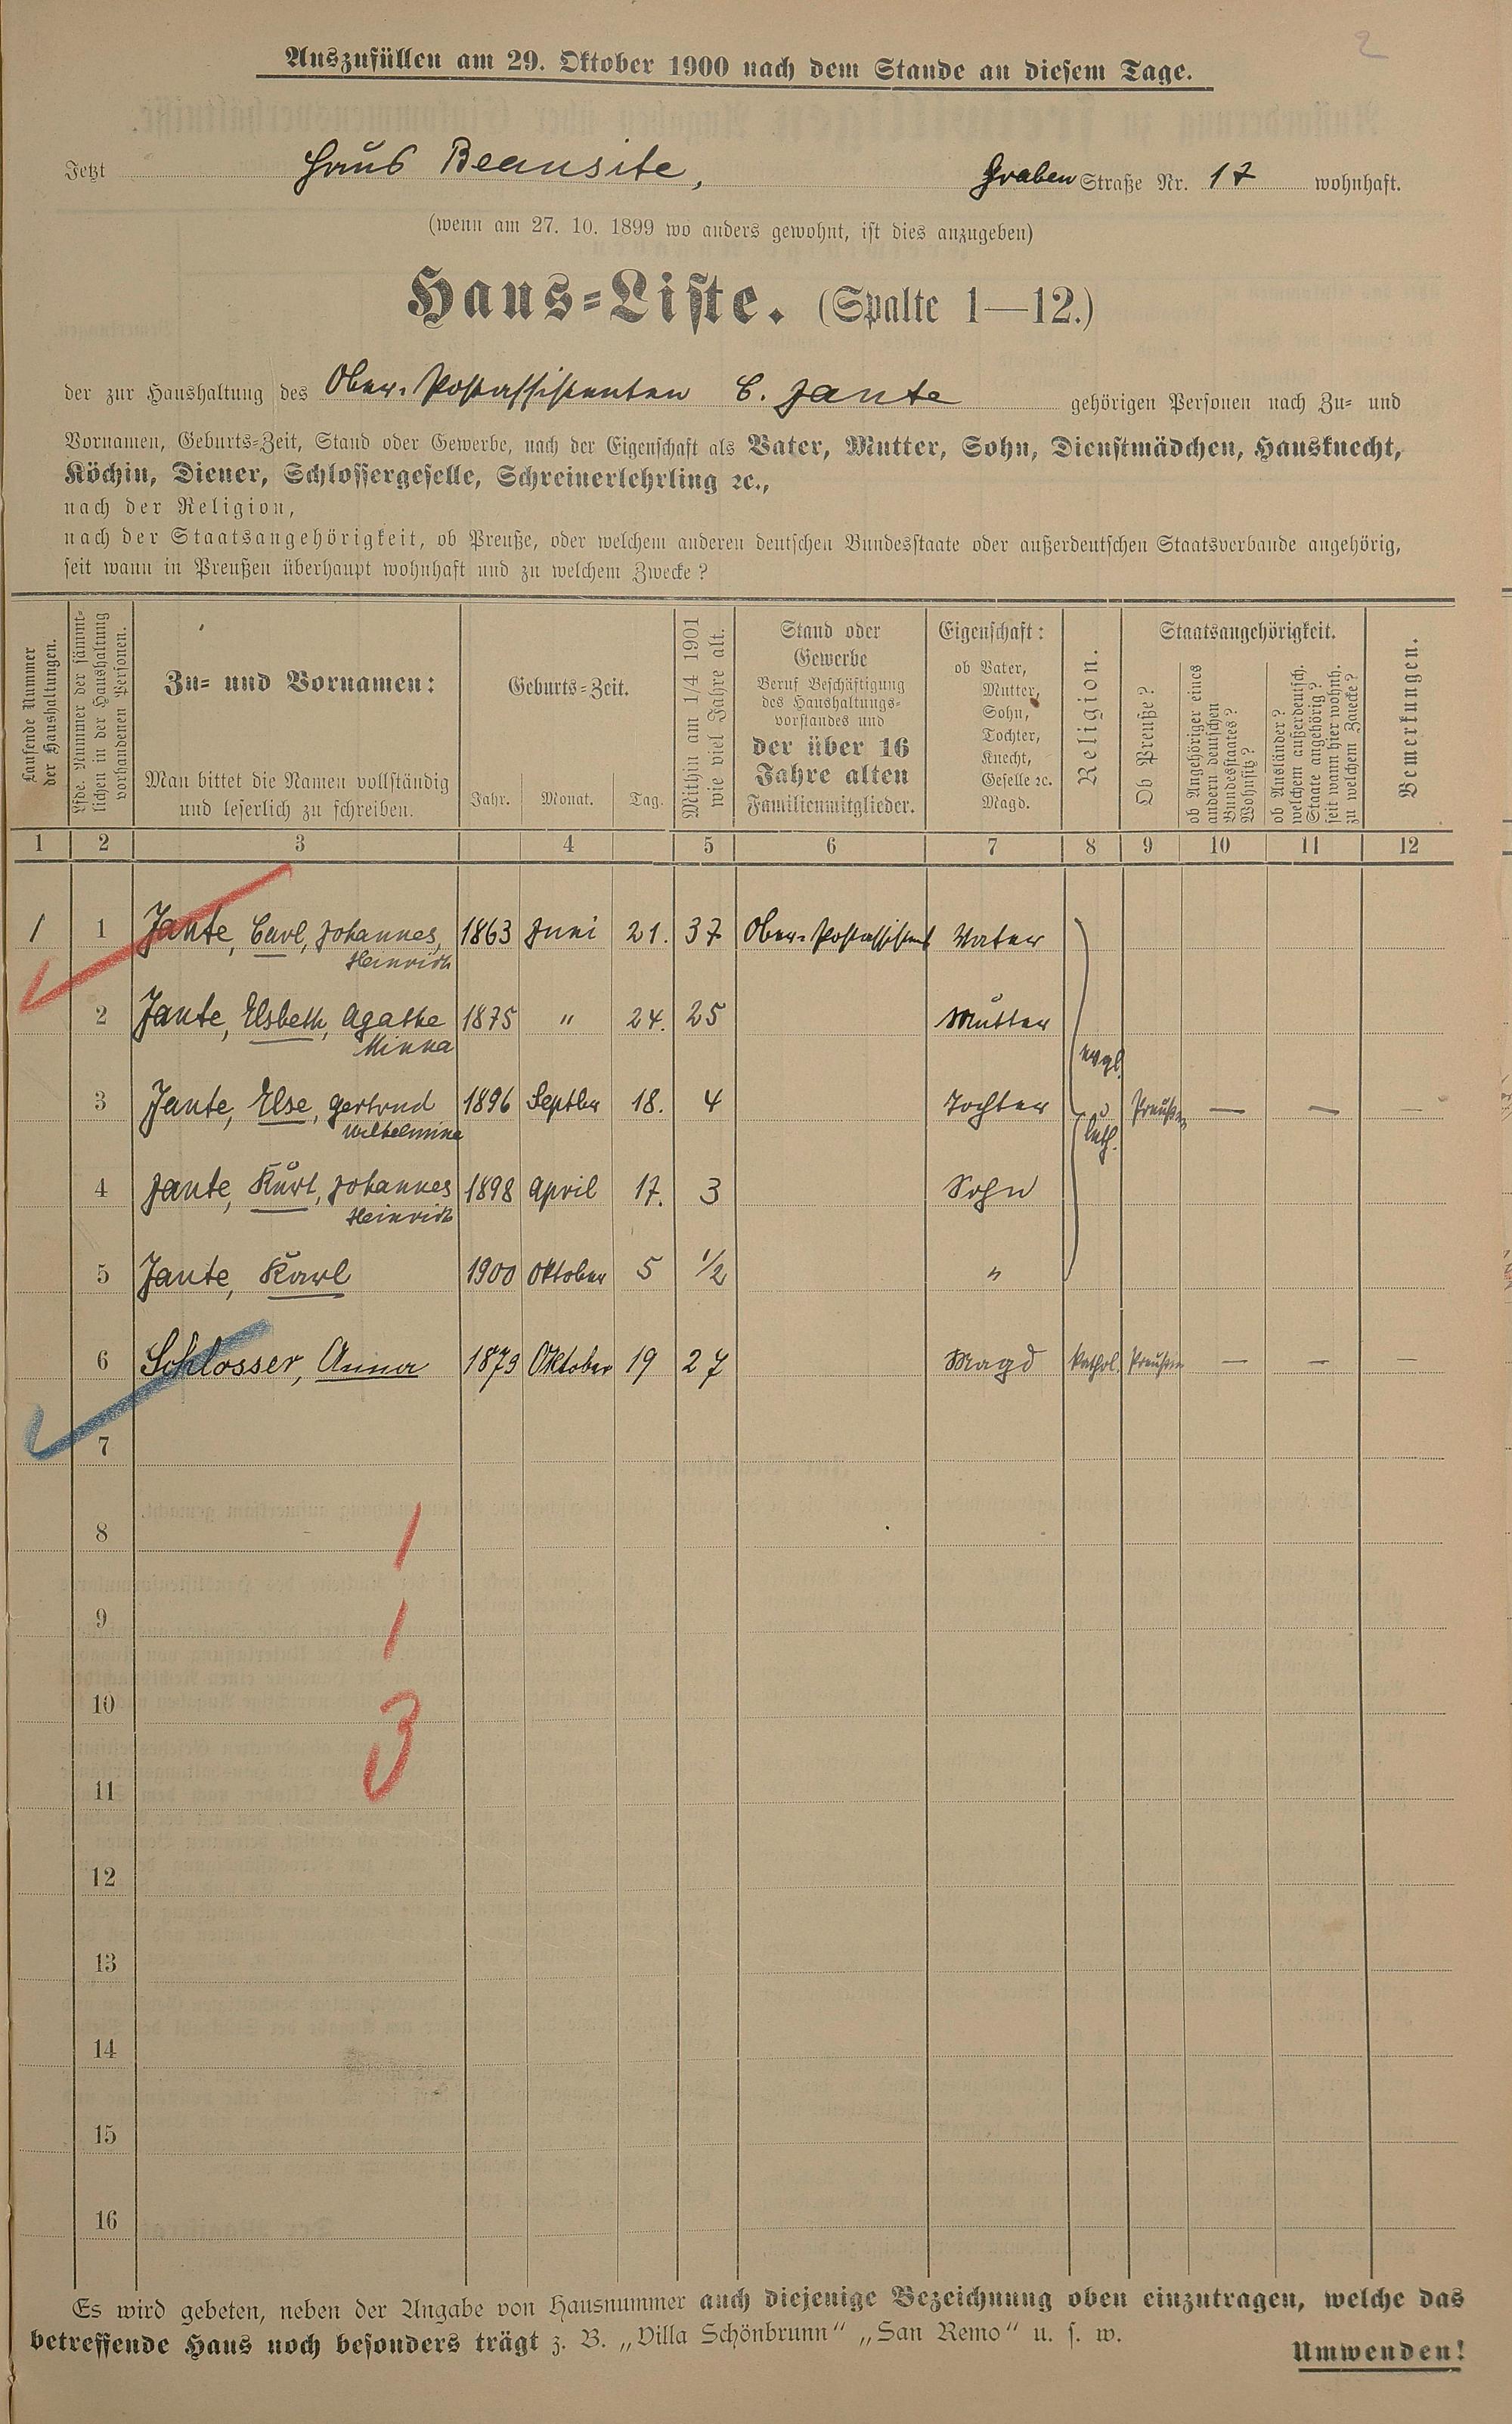 2
Auszufüllen am 29. Oktober 1900 nach dem Stande an diesem Tage.
Jetzt Haus Beausite, Graben Straße Nr. 17 wohnhaft.
(wenn am 27. 10. 1899 wo anders gewohnt, ist dies anzugeben)
Haus-Liste. (Spalte 1—12.)
der zur Haushaltung des Ober-Postassistenten C. Jante gehörigen Personen nach Zu- und
Vornamen, Geburts-Zeit, Stand oder Gewerbe, nach der Eigenschaft als Vater, Mutter, Sohn, Dienstmädchen, Hausknecht,
Köchin, Diener, Schlossergeselle, Schreinerlehrling ꝛc.,
nach der Religion,
nach der Staatsangehörigkeit, ob Preuße, oder welchem anderen deutschen Bundesstaate oder außerdeutschen Staatsverbande angehörig,
seit wann in Preußen überhaupt wohnhaft und zu welchem Zwecke?
Laufende Nummer
der Haushaltungen.
Lfde. Nummer der sämmt-
lichen in der Haushaltung
vorhandenen Personen.
Zu- und Vornamen:
Man bittet die Namen vollständig
und leserlich zu schreiben.
Geburts-Zeit.
Jahr. Monat. Tag.
Mithin am 1/4 1901
wie viel Jahre alt.
Stand oder
Gewerbe
Beruf Beschäftigung
des Haushaltungs-
vorstandes und
der über 16
Jahre alten
Familienmitglieder.
Eigenschaft:
ob Vater,
Mutter,
Sohn,
Tochter,
Knecht,
Geselle ꝛc.
Magd.
Religion.
Staatsangehörigkeit.
Ob Preuße?
ob Angehöriger eines
andern deutschen
Bundesstaates?
Wohnsitz?
ob Ausländer?
welchem außerdeutsch.
Staate angehörig?
seit wann hier wohnh.
zu welchem Zwecke?
Bemerkungen.
1 2 3 4 5 6 7 8 9 10 11 12
1 1 Jante, Carl, Johannes, 1863 Juni 21. 37 Ober-Postassistent Vater
Heinrich
2 Jante, Elsbeth, Agathe 1875 " 24. 25 Mutter
Minna
evgl.
3 Jante, Else, Gertrud 1896 Septbr 18. 4 Tochter Preußen — — —
Wilhelmine
luth.
4 Jante, Kurt, Johannes 1898 April 17. 3 Sohn
Heinrich
5 Jante, Karl 1900 Oktober 5 1/2 "
6 Schlosser, Anna 1873 Oktober 19 27 Magd kathol. Preußin — — —
7
8
1
9
1
10
3
11
12
13
14
15
16
Es wird gebeten, neben der Angabe von Hausnummer auch diejenige Bezeichnung oben einzutragen, welche das
betreffende Haus noch besonders trägt z. B. „Villa Schönbrunn“ „San Remo“ u. s. w.
Umwenden!